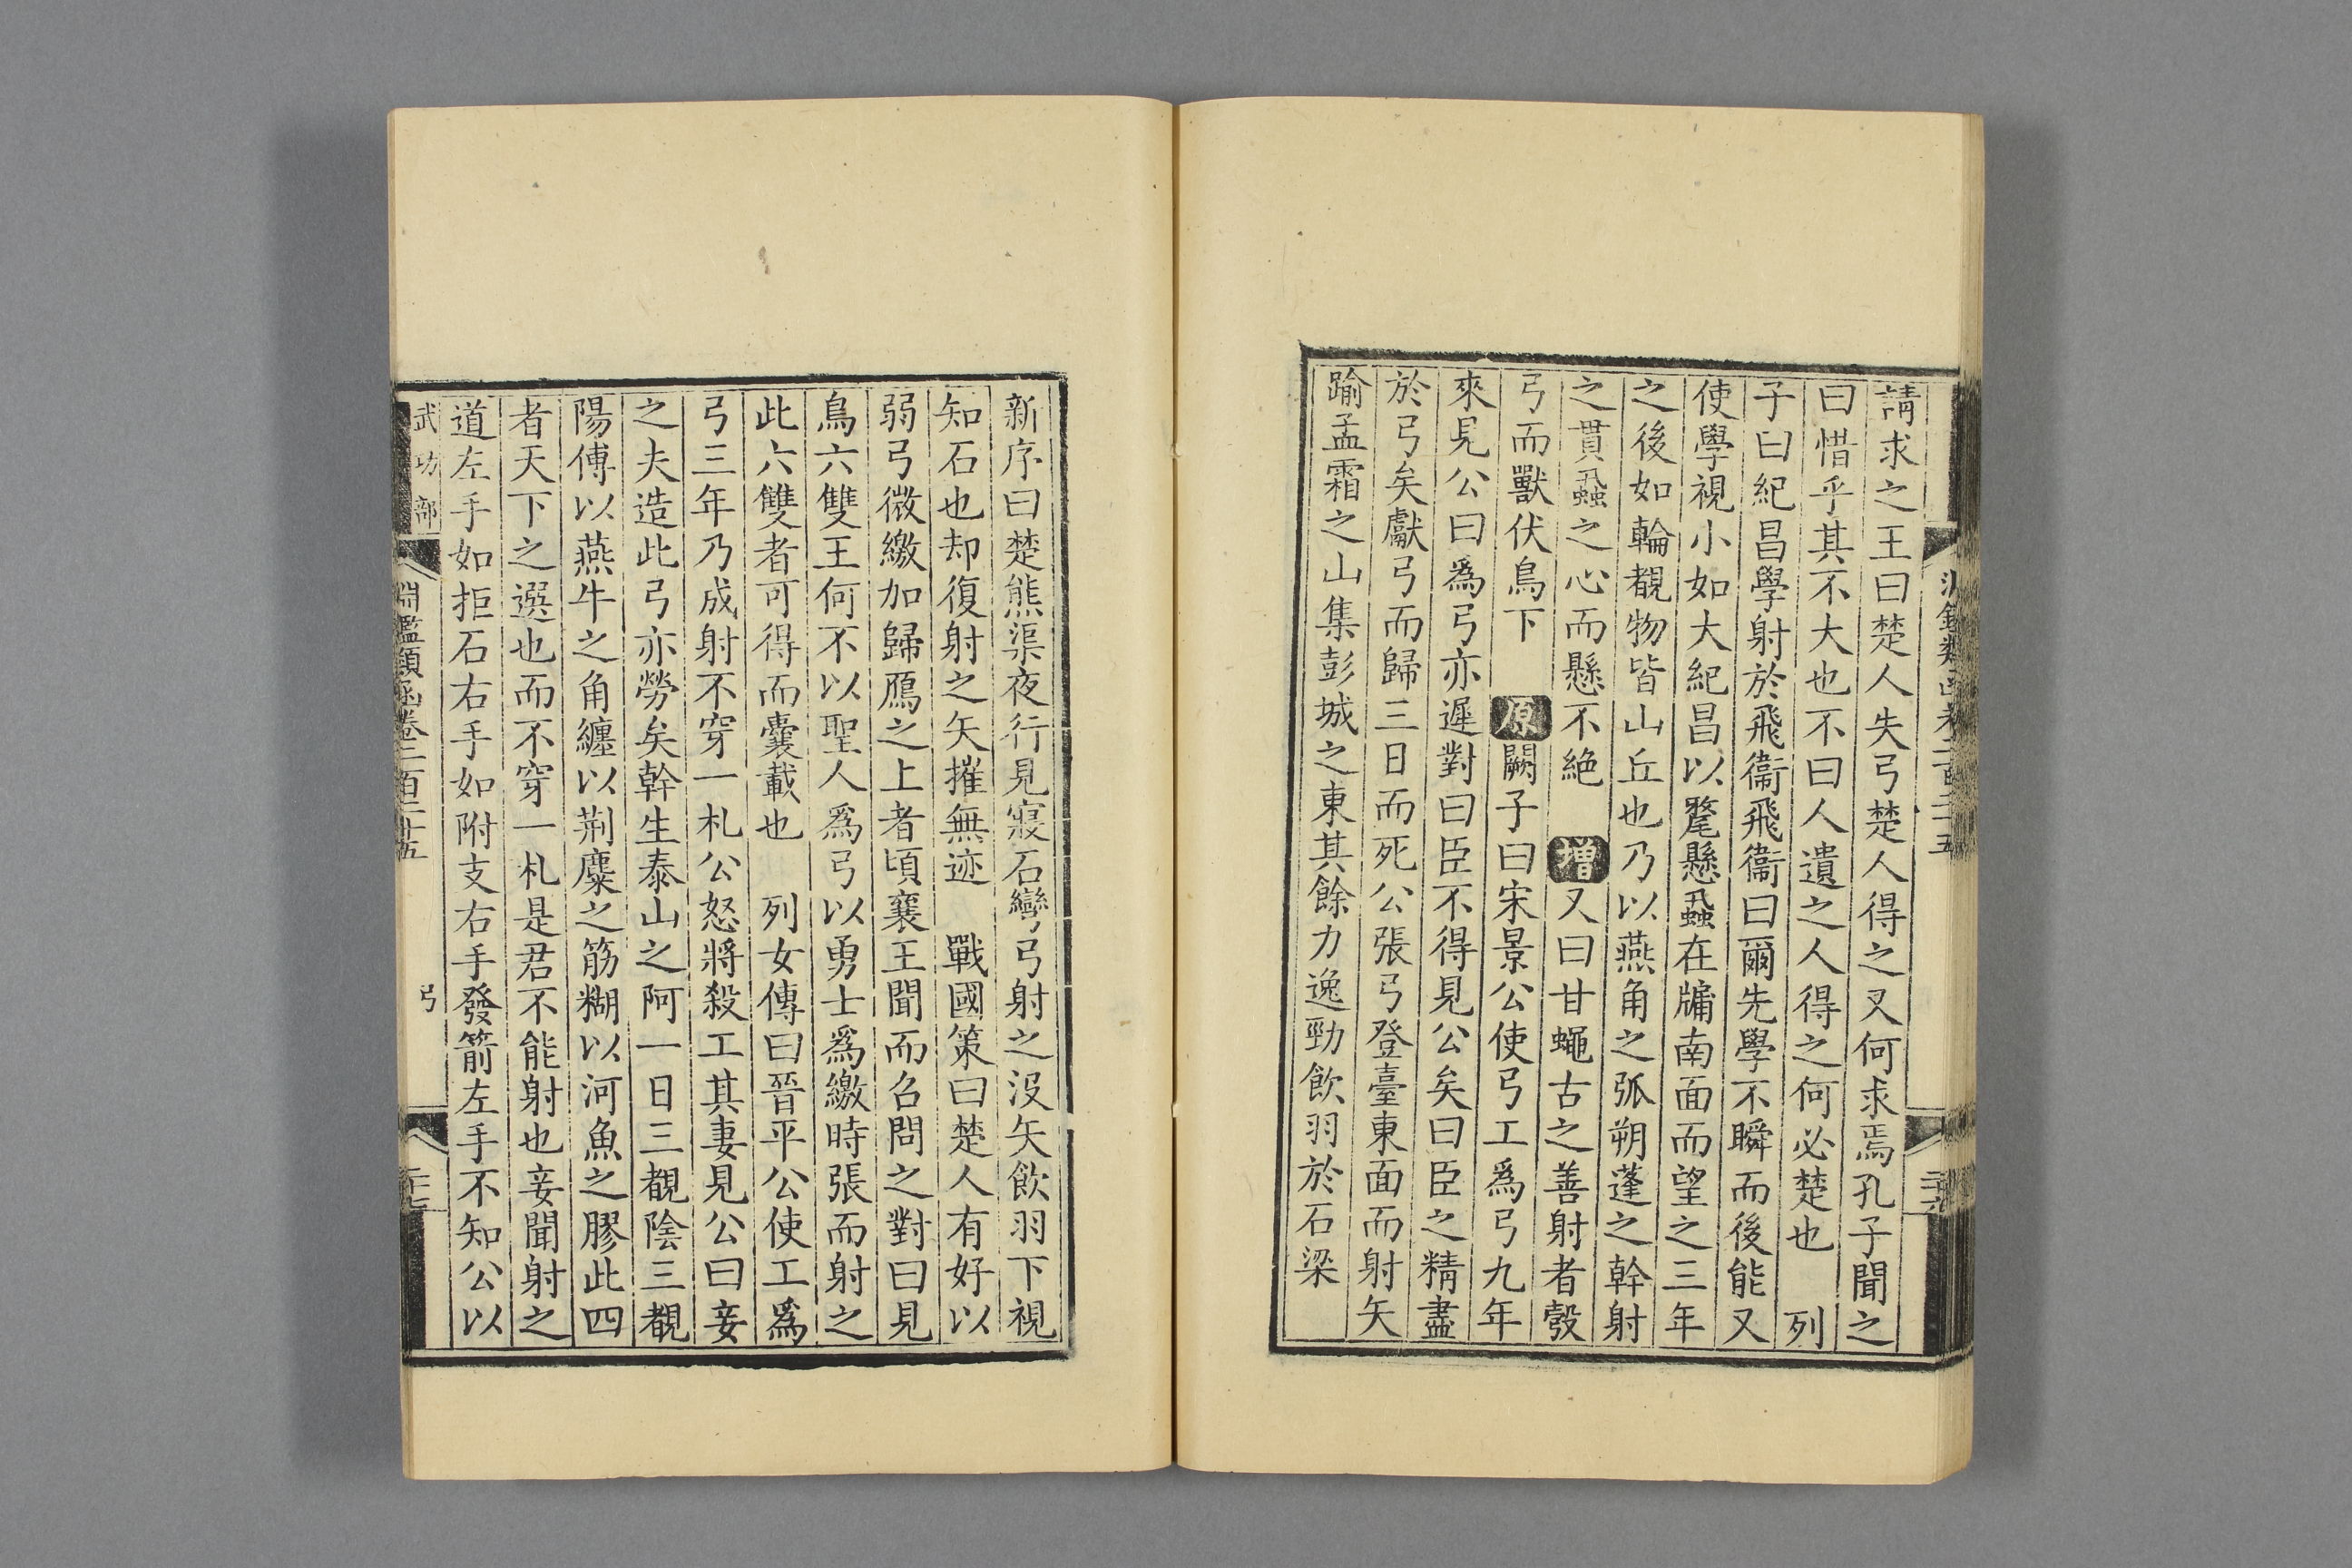 請求之王曰楚人失弓楚人得之又何求焉孔子聞之
曰惜乎其不大也不曰人遺之人得之何必楚也 列
子曰紀昌學射於飛衞飛衞曰爾先學不瞬而後能又
使學視小如大紀昌以氂懸蝨在牖南面而望之三年
之後如輪覩物皆山丘也乃以燕角之弧朔蓬之幹射
之貫蝨之心而懸不絶 增又曰甘蠅古之善射者彀
弓而獸伏鳥下 原闕子曰宋景公使弓工爲弓九年
來見公曰爲弓亦遲對曰臣不得見公矣曰臣之精盡
於弓矣獻弓而歸三日而死公張弓登臺東面而射矢
踰孟霜之山集彭城之東其餘力逸勁飲羽於石梁
新序曰楚熊渠夜行見寢石彎弓射之没矢飲羽下視
知石也却復射之矢摧無迹 戰國策曰楚人有好以
弱弓微繳加歸鴈之上者頃襄王聞而召問之對曰見
鳥六雙王何不以聖人爲弓以勇士爲繳時張而射之
此六雙者可得而囊載也 列女傳曰晉平公使工爲
弓三年乃成射不穿一札公怒將殺工其妻見公曰妾
之夫造此弓亦勞矣幹生泰山之阿一日三覩陰三覩
陽傅以燕牛之角纏以荆麋之筋糊以河魚之膠此四
者天下之選也而不穿一札是君不能射也妾聞射之
道左手如拒石右手如附支右手發箭左手不知公以
武功部 淵鑑類函卷二百二十五 弓 二十七